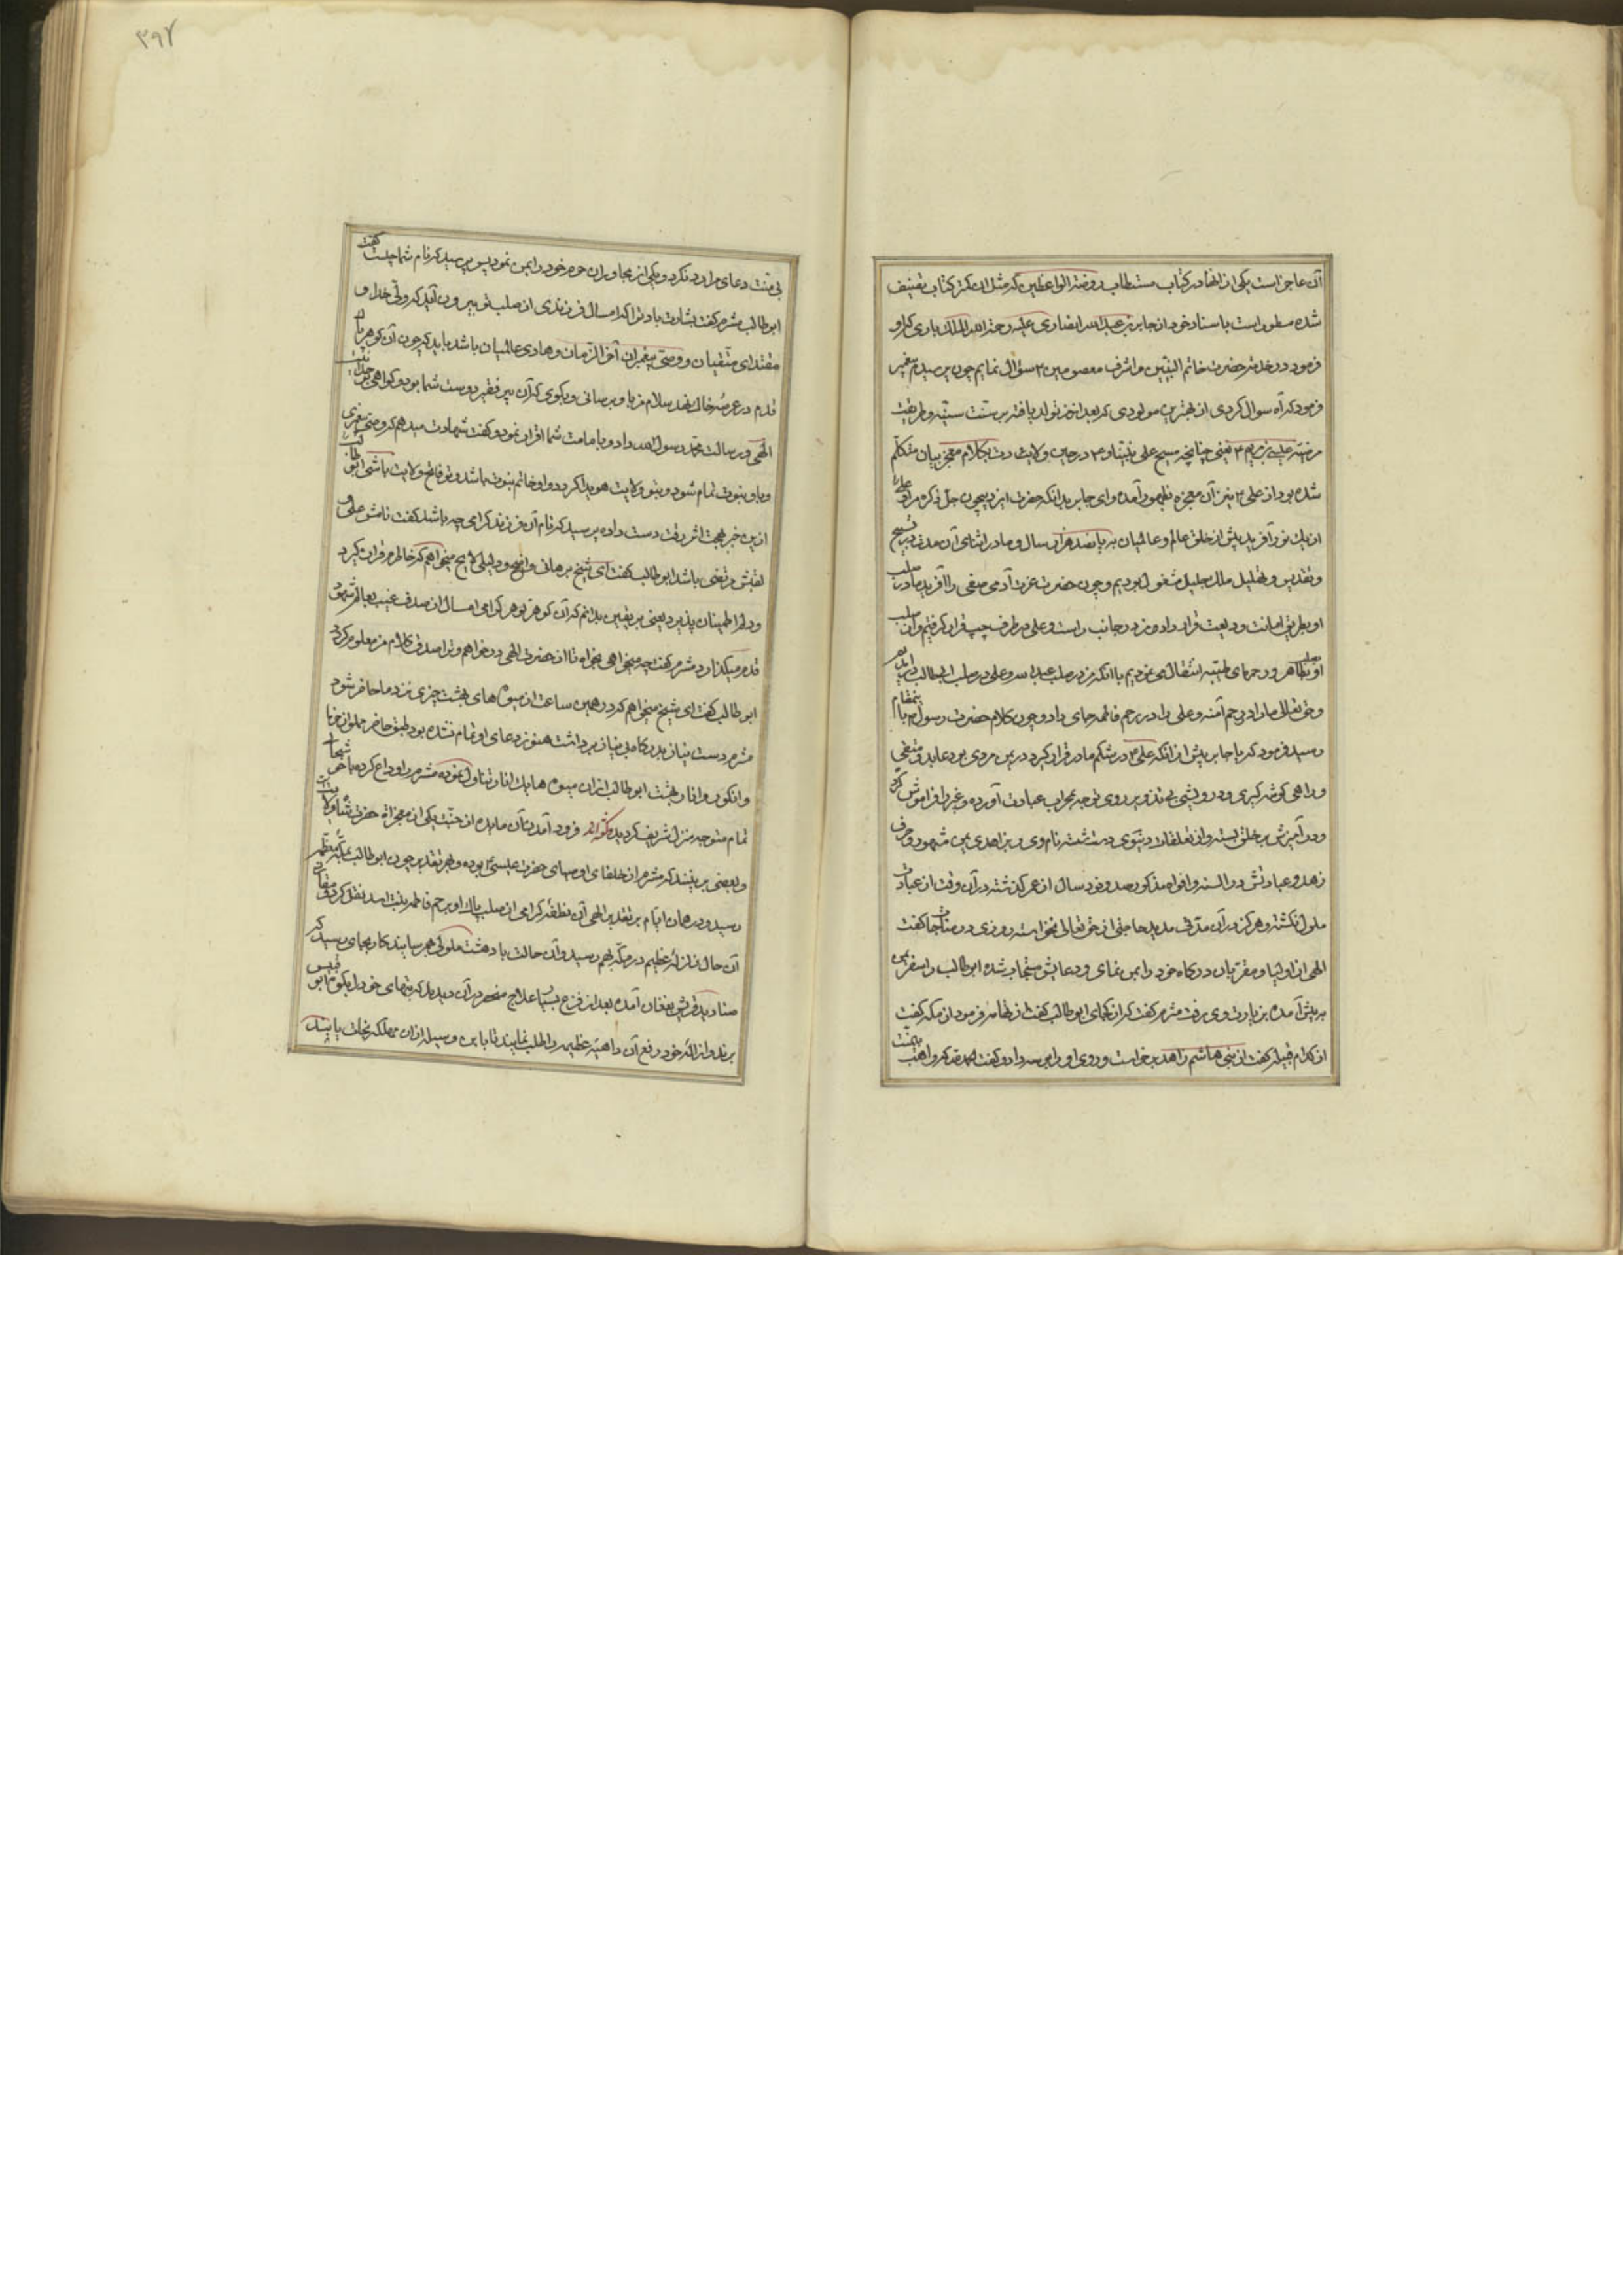 آن عاجز است یکی از انها در کتاب مستطاب روضة الواعظین که مثل ان کتر کتاب تصنیف
شده مسطور است باسناد خود از جابر بن عبدالله انصاری علیه رحمة الله الملک الباری که او
فرمود در خدمة حضرت خاتم النبیین و اشرف معصومین ۳ سؤال نمایم چون پرسیدم پیغمبر
فرمود که آه سوال کردی از بهترین مولودی که بعد از من تولد یافته بر سنت سنیه و طریقت
مرضیه عیسی بن مریم ۳ یعنی چنانچه مسیح علی نبینا و ۳ در حین ولادت بکلام معجز بیان متکلم
شده بود از علی ۳ نیز آن معجزه بظهور آمده و ای جابر بدانکه حضرت ایزد بیچون جل ذکره مرا و علی را
از یک نور آفرید پیش از خلق عالم و عالمیان به پانصد هزار سال و ما در اثنای آن مدت به تسبیح
و تقدیس و تهلیل ملک جلیل مشغول بودیم و چون حضرت عزت آدم صفی را آفرید ما در صلب
او بطریق امانت ودیعت قرار داد و من در جانب راست و علی در طرف چپ قرار گرفتیم و از صلب
او بصلب طاهر و رحمهای طیبه انتقال می نمودیم تا انکه من در صلب عبدالله و علی در صلب ابی طالب در آمدیم
و حق تعالی ما را در رحم آمنه و علی را در رحم فاطمه جای داد و چون کلام حضرت رسول ۳ باینمقام
رسید فرمود که یا جابر پیش از انکه علی ۳ در شکم مادر قرار گیرد در یمن مردی بود عابد و متقی
و راهی گوشه گیری و درویشی بی تزویر روی توجه بمحراب عبادت آورده و غیر را فراموش کرد
و در آمیزش بر خلق بسته و از تعلقات دنیوی دست شسته نام وی و بزاهدی یمن مشهود و معروف
زهد و عبادتش در السنه و افواه مذکور صد و نود سال از عمر گذشته در آن وقت از عبادت
ملول نگشته و هرگز در آن مدت مدید حاجتی از حق تعالی نخواسته روزی در مناجات گفت
الهی از اولیا و مقربان درگاه خود را بمن نمای و دعایش مستجاب شده ابوطالب را سفر یمن
پیش آمده بزیارت وی رفت مثرم گفت که از کجای ابوطالب گفت از تهامه فرمود از مکه گفت
از کدام قبیله گفت از بنی هاشم زاهد برخواست و روی او را بوسه داد و گفت الحمد لله که واهب بی منت
بی منت دعای مرا رد نکرد و یکی از مجاوران حرم خود را بمن نمود پس پرسید که نام شما چیست گفت
ابوطالب مثرم گفت بشارت باد ترا که امسال فرزندی از صلب تو بیرون آید که ولی خدا و
مقتدای متقیان و وصی پیغمبران آخر الزمان و هادی عالمیان باشد باید که چون آن گوهر پاک
قدم در عرصه خاک نهد سلام مرا باو برسانی و بگوی که آن پیر فقیر دوست شما بود و گواهی
الهی و رسالت محمد رسول الله داد و بامامت شما اقرار نمود و گفت شهادت میدهم که وصی پیغمبری
و باو نبوت تمام شود و بتو ولایت هویدا گردد و او خاتم نبوت باشد و تو فاتح ولایت باشی ابوطالب
از این خبر بهجت اثر رقت دست داده پرسید که نام آن فرزند گرامی چه باشد گفت نامش علی و
لقبش مرتضی باشد ابوطالب گفت ای شیخ برهانی واضح و دلیلی لایح میخواهم که خاطرم قرار گیرد
و دلم اطمینان پذیرد یعنی بیقین بدانم که آن گوهر گرامی امسال از صدف غیب بعالم شهود
قدم میگذارد مثرم گفت چه میخواهی بخواه تا از حضرت الهی درخواهم و ترا صدق کلام من معلوم گردد
ابوطالب گفت ای شیخ میخواهم که در همین ساعت از میوه های بهشت چیزی نزد ما حاضر شود
مثرم دست نیاز بدرگاه بی نیاز برداشت هنوز دعای او تمام نشده بود طبق حاضر مملو از خرما
و انگور و انار بهشت ابوطالب ازان میوه ها یک انار تناول نموده مثرم را وداع کرده با
تمام متوجه منزل شریف گردید فرود آمدن آن مایده از جنت یکی از معجزات حضرت شاه ولایت
و بعضی برینند که مثرم از خلفای اوصیای حضرت عیسی ۳ بوده و بهر تقدیر چون ابوطالب بمکه معظمه
رسید و در همان ایام بر تقدیر الهی آن نطفه گرامی از صلب پاک او برحم فاطمه بنت اسد نقل کرد و مقارن
آن حال زلزله عظیم در مکه بهم رسید و آن حالت بادهشت
صنادید قریش بفغان آمده بعد از فزع بسیار علاج منحصر در آن دیدند که بتهای خود را بکوه ابو قبیس
برند و از الهه خود رفع آن داهیه عظیمه را طلب نمایند تا باین وسیله ازان مهلکه نجات یابند